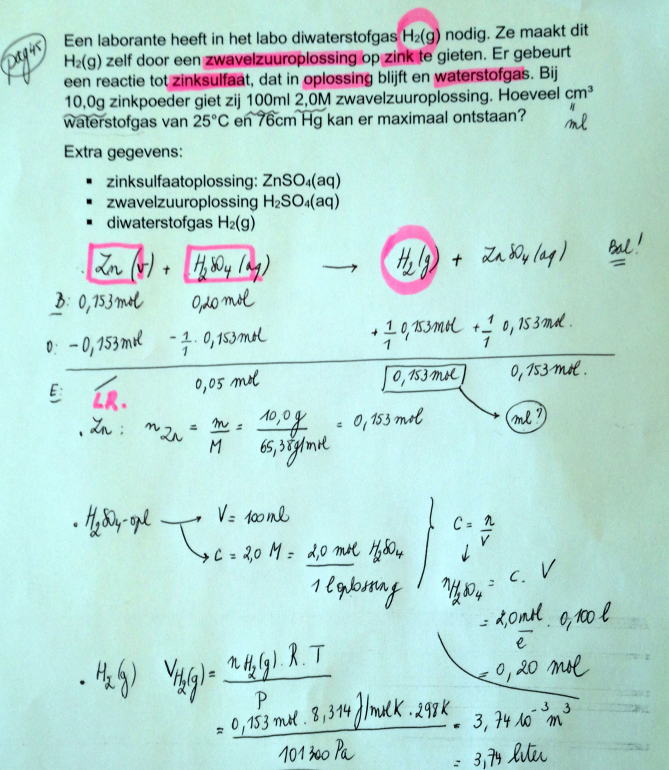 pag 45
Een laborante heeft in het labo diwaterstofgas H₂(g) nodig. Ze maakt dit
H₂(g) zelf door een zwavelzuuroplossing op zink te gieten. Er gebeurt
een reactie tot zinksulfaat, dat in oplossing blijft en waterstofgas. Bij
10,0g zinkpoeder giet zij 100ml 2,0M zwavelzuuroplossing. Hoeveel cm³
waterstofgas van 25°C en 76cm Hg kan er maximaal ontstaan?
"
ml
Extra gegevens:
▪ zinksulfaatoplossing: ZnSO₄(aq)
▪ zwavelzuuroplossing H₂SO₄(aq)
▪ diwaterstofgas H₂(g)
. Zn (v) + H₂SO₄ (aq) → H₂(g) + ZnSO₄ (aq) Bal!
B: 0,153 mol 0,20 mol
O: - 0,153 mol - 1/1 . 0,153 mol + 1/1 0,153 mol + 1/1 0,153 mol.
E: / 0,05 mol 0,153 mol 0,153 mol.
LR. ml?
. Zn : n Zn = m/M = 10,0 g / 65,38 g/mol = 0,153 mol
. H₂SO₄-opl → V = 100 ml
→ C = 2,0 M = 2,0 mol H₂SO₄ / 1 l oplossing
C = n/V
↓
nH₂SO₄ = C . V
= 2,0 mol/l . 0,100 l
= 0,20 mol
. H₂(g) VH₂(g) = nH₂(g) . R . T / P
= 0,153 mol . 8,314 J/mol K . 298 K / 101300 Pa = 3,74 10⁻³ m³
= 3,74 liter